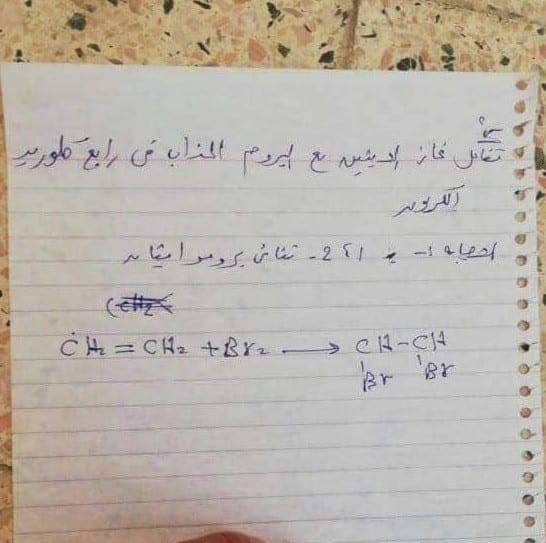 س/
تفاعل غاز الايثين مع البروم المذاب في رابع كلوريد
الكربون
الاجابة :- 1،2- ثنائي برومو ايثان
(CH2
CH2 = CH2 + Br2 → CH-CH
Br Br